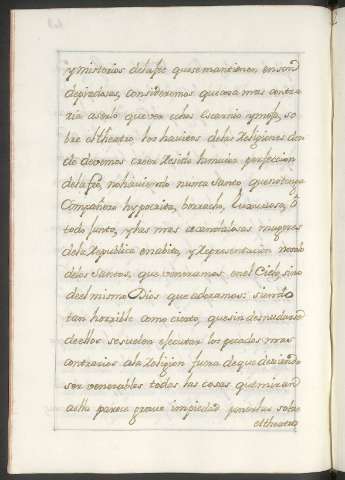 y misterios de la fee que se mantienen en sombr
de piedosas, consideremos que cosa mas contra
ria a esto que ver echas escarnio y mofa, so
bre el theatro los havitos de las Religiones don
de devemos creer reside la maior perfeccion
de la fee, no haviendo nunca santo que no tenga
Compañero hypocrita, borracho, luxurioso, ô
todo junto, y las mas escandalosas mugeres
de la Republica en abito, y representacion no solo
de los Santos, que veneramos en el Cielo, sino
de el mismo Dios que adoramos: siendo
tan horrible como cierto, que sin desnudarse
de ellos se suelen ejecutar los pecados mas
contrarios a la religion fuera de que deviendo
ser venerables todas las cosas que miran
a ella parece grave impiedad ponerlas sobre
el theatro